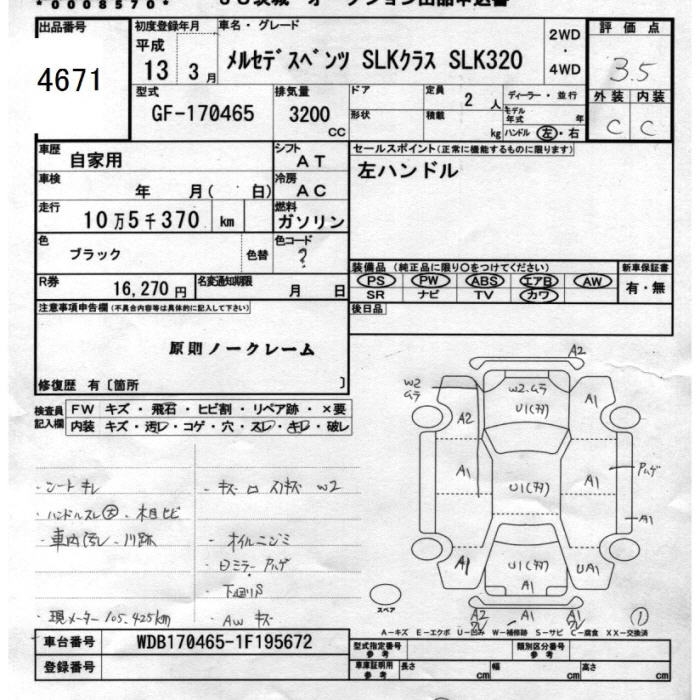 *0008570*
出品番号
4671
初度登録年月
平成
13 3月
車名・グレード
メルセデスベンツ SLKクラス SLK320
2WD
・
4WD
評価点
3.5
外装 内装
C C
型式
GF-170465
排気量
3200
CC
ドア
形状
定員
2 人
積載
kg
ディーラー・並行
モデル年式 年
ハンドル 左・右
車歴
自家用
シフト
AT
車検
年 月( 日)
冷房
AC
走行
10万5千370 km
燃料
ガソリン
色
ブラック
色替
色コード
?
R券
16,270円
名変通知期限
月 日
セールスポイント(正常に機能するものに限ります)
左ハンドル
装備品 (純正品に限り○をつけてください)
新車保証書
PS PW ABS エアB AW
SR ナビ TV カワ
有・無
後日品
注意事項申告欄(不具合内容等は具体的に記入して下さい)
原則ノークレーム
修復歴 有〔箇所 〕
検査員
記入欄
FW キズ・飛石・ヒビ割・リペア跡・×要
内装 キズ・汚レ・コゲ・穴・スレ・キレ・破レ
・シートキレ
・ハンドルスレ大・木目ヒビ
・車内汚レ・
・現メーター105,425km
・オイルニジミ
・ドミラー アハゲ
・下廻りS
・AWキズ
W2
A2
W2
ムラ
W2.ムラ
U1
A1
A2
A1
U1
A1
アハゲ
A1
A1
U1
A1
UA1
A2
A1
A1
W2
スペア
①
A-キズ E-エクボ U-凹み W-補修跡 S-サビ C-腐食 XX-交換済
車台番号
WDB170465-1F195672
登録番号
型式指定番号
参考
類別区分番号
参考
車庫証明用
参考
長さ cm
幅 cm
高さ cm